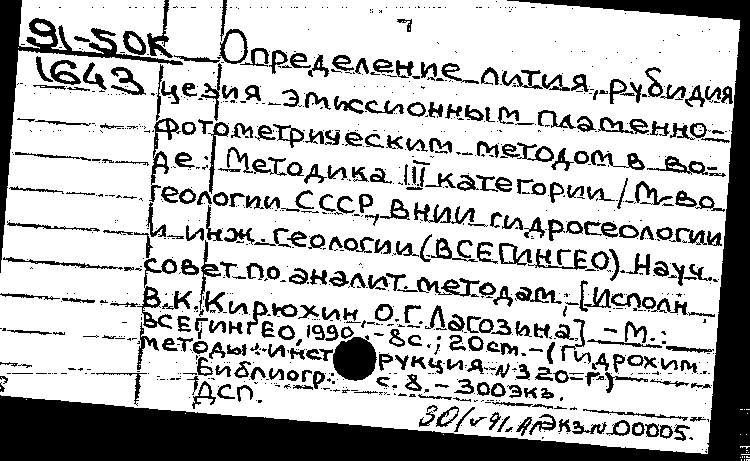 91-50К
1643
Определение лития, рубидия
цезия эмиссионным пламенно-
фотометрическим методом в во-
де: Методика III категории / М-во
геологии СССР, ВНИИ гидрогеологии
и инж. геологии (ВСЕГИНГЕО), Науч.
совет по аналит. методам; [Исполн.
В.К. Кирюхин, О.Г. Лагозина]. - М.:
ВСЕГИНГЕО, 1990. - 8с.; 20см. - (Гидрохим.
методы: Инструкция N 320-Г)
Библиогр.: с. 8. - 300 экз.
ДСП.
30/V 91. Экз. N 00005.